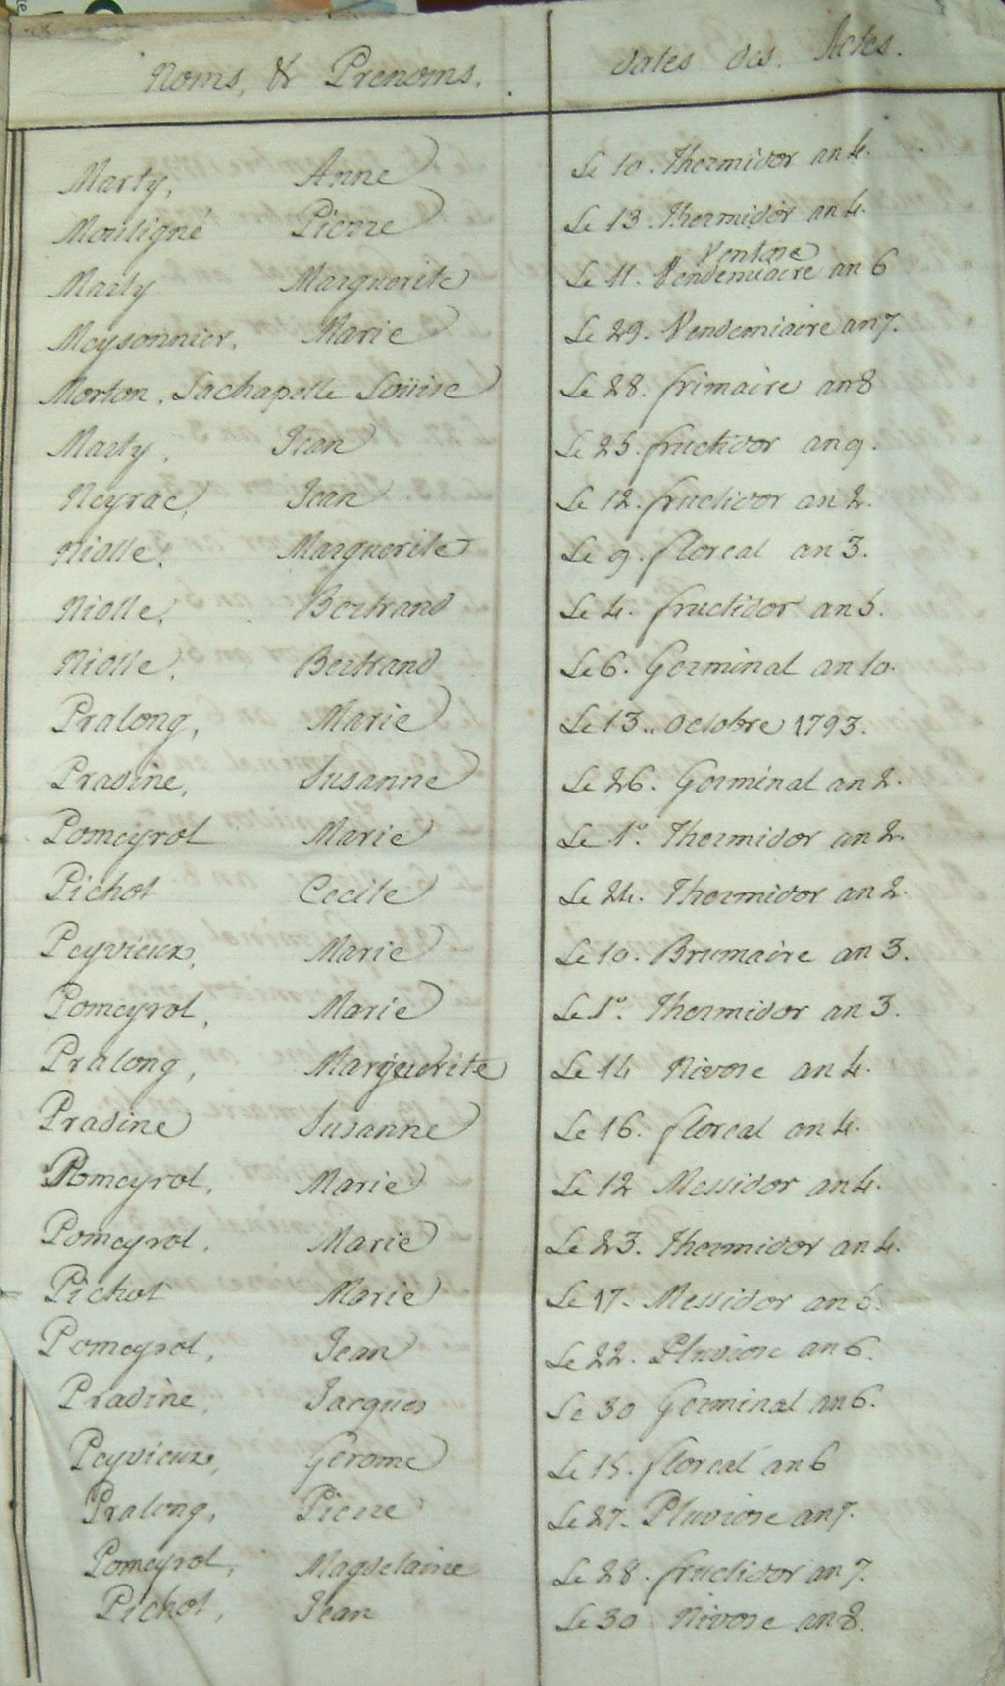 Noms, & Prenoms. Dates des Actes.
Marty, Anne Le 10. Thermidor an 4.
Mouligné Pierre Le 13. Thermidor an 4.
Ventose
Marty Marguerite Le 11. Vendemiaire an 6
Meysonnier, Marie Le 29. Vendemiaire an 7.
Morton, Lachapelle Loüise Le 28. frimaire an 8
Marty, Jean Le 25. fructidor an 9.
Neyrac, Jean Le 12. fructidor an 2.
Niolle, Marguerite Le 9. floreal an 3.
Niolle, Bertrand Le 4. fructidor an 5.
Niolle, Bertrand Le 6. Germinal an 10.
Pralong, Marie Le 13.. octobre 1793.
Pradine, Susanne Le 26. Germinal an 2.
Pomeyrol Marie Le 1º. Thermidor an 2.
Pichot Cecile Le 24. Thermidor an 2.
Peyvieux, Marie Le 10. Brumaire an 3.
Pomeyrol, Marie Le 1º. Thermidor an 3.
Pralong, Marguerite Le 14 Nivose an 4.
Pradine Susanne Le 16. floreal an 4.
Pomeyrol, Marie Le 12 Messidor an 4.
Pomeyrol, Marie Le 23. Thermidor an 4.
Pichot Marie Le 17. Messidor an 5.
Pomeyrol, Jean Le 22. Pluviose an 6.
Pradine, Jacques Le 30 Germinal an 6.
Peyvieux, Gerome Le 15. floreal an 6
Pralong, Pierre Le 27. Pluviose an 7.
Pomeyrol, Magdelaine Le 28. fructidor an 7.
Pichot, Jean Le 30 Nivose an 8.